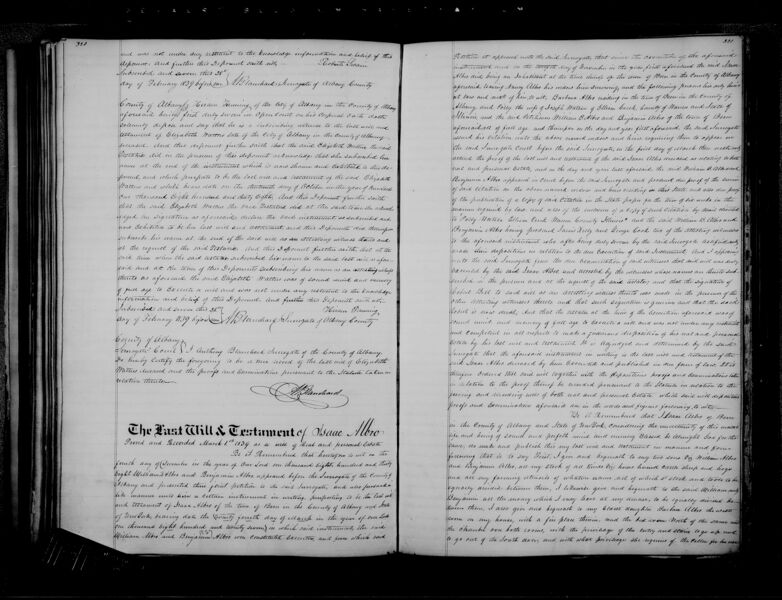 350
and was not under any restraint to the knowledge information and belief of this
deponent. And further this Deponent saith not
Subscribed and sworn this 25th
day of February 1839 before me A Blanchard Surrogate of Albany County
County of Albany of the City of Albany in the County of Albany
aforesaid being first duly sworn in Open Court on his Corporal Oath doth
solemnly depose and say that he is a subscribing witness to the last will and
testament of Elizabeth Watters late of the City of Albany in the County of Albany
deceased. And this deponent further saith that the said Elizabeth Watters the said
Testatrix did in the presence of this deponent acknowledge that she subscribed her
name at the end of the instrument which is now shown and exhibited to this de-
ponent and which purports to be the last will and testament of the said Elizabeth
Watters and which bears date on the day of October in the year of our Lord
One Thousand Eight hundred and thirty Eight. And this Deponent further saith
that the said Elizabeth Watters the said Testatrix did at the same time she acknowl-
edged her Signature as aforesaid declare the said instrument so subscribed and
now exhibited to be her last will and testament and this Deponent did thereupon
subscribe his name at the end of the said will as an attesting witness thereto and
at the request of the said Testatrix. And this Deponent further saith that at the
said time when the said testatrix subscribed her name to the said last will as afore-
said and at the time of this Deponent subscribing his name as an attesting witness
thereto as aforesaid the said Elizabeth Watters was of sound mind and memory
of full age to Execute a will and was not under any restraint to the knowledge
information and belief of this Deponent. And further this Deponent saith not
Subscribed and sworn this 25th
day of February 1839 before me A Blanchard Surrogate of Albany County
County of Albany
Surrogates Court I Anthony Blanchard Surrogate of the County of Albany
do hereby Certify the foregoing to be a true record of the last will of Elizabeth
Watters deceased and the proofs and Examinations pursuant to the Statute taken in
relation thereto
A Blanchard
The Last Will & Testament of Isaac Albro
Proved and Recorded March 1st 1839 as a will of Real and personal Estate
Be it Remembered that heretofore to wit on the
fourth day of December in the year of our Lord one thousand eight hundred and thirty
Eight William Albro and Benjamin Albro appeared before the Surrogate of the County of
Albany and presented their joint petition to the said Surrogate and also produced a
certain instrument in writing purporting to be the last will
and testament of Isaac Albro of the town of Bern in the County of Albany and State
of New York bearing date the twenty fourth day of March in the year of our Lord
one thousand eight hundred and twenty seven in which said instrument the said
William Albro and Benjamin Albro were constituted Executors and from which said
351
Petition it appeared unto the said Surrogate that since the execution of the aforesaid
instrument and on the day of November in the year first aforesaid the said Isaac
Albro died being an Inhabitant at the time of the town of Bern in the County of Albany
aforesaid leaving Nancy Albro his widow him surviving and the following persons his only heirs
at law and next of kin, to wit, Barbara Albro residing in the town of Bern in the County of
Albany and Polly the wife of Joseph Watson of County of and State of
Illinois and the said Petitioners William Albro and Benjamin Albro of the town of Bern
aforesaid all of full age and thereupon on the day and year first aforesaid the said Surrogate
issued his Citation unto the above named widow and heirs requiring them to appear in
the said Surrogate Court before the said Surrogate on the first day of March then next
attend the proof of the last will and testament of the said Isaac Albro deceased as relating to both
real and personal Estate, and on the day and year last aforesaid the said William Albro and
Benjamin Albro appeared in Court before the said Surrogate and produced due proof of the service
of said Citation on the above named widow and heirs residing in this State and also due proof
of the publication of a copy of said Citation in the State paper for the term of six weeks in the
manner required by law, and also of the service of a Copy of said Citation by being mailed
to Polly Watson and the said William Albro and
Benjamin Albro having produced two of the attesting witnesses
to the aforesaid instrument who after being duly sworn by the said Surrogate testified and
made their depositions in relation to the due Execution of said Instrument and it appearing
unto the said Surrogate from the due Examination of said witnesses that said will was duly
executed by the said Isaac Albro and attested by the witnesses whose names are thereto sub-
scribed in the presence and at the request of the said testator and that the signature of
as an attesting witness thereto was made in the presence of the
other attesting witnesses thereto and that such signature is genuine and that the said
is now dead, and that the testator at the time of the Execution aforesaid was of
sound mind and memory of full age to Execute a will and was not under any restraint
and competent in all respects to make a testamentary disposition of his real and personal
Estate by his last will and testament. It is adjudged and determined by the said
Surrogate that the aforesaid instrument in writing is the last will and testament of the
said Isaac Albro deceased by him Executed and published in due form of law. It is
thereupon Ordered that said will together with the depositions proofs and examinations taken
in relation to the proof thereof be recorded pursuant to the Statute in relation to the
proving and recording wills of both real and personal estate which said will depositions
proofs and examinations aforesaid are in the words and figures following, to wit:
Be it Remembered that I Isaac Albro of Bern
in the County of Albany and State of New York, considering the uncertainty of this mortal
life and being of sound and perfect mind and memory Blessed be Almighty God for the
same, do make and publish this my last will and testament in manner and form
following that is to say First, I give and bequeath to my two sons viz William Albro
and Benjamin Albro, all my stock of all kinds viz horses horned cattle sheep and hogs
and all my farming utensils of whatever name all of which I stock and tools to be
equally divided between them, I likewise give and bequeath to the said William and
Benjamin all the money which I may leave at my decease, to be equally divided be-
tween them, I also give and bequeath to my eldest daughter Barbara Albro the west
room in my house, with a fire place therein, and the bed room North of the same and
the chamber over both rooms, with the privilege of the entry and stairs to go up and
to go out of the South door, and with what privilege she requires of the Cellar for her use